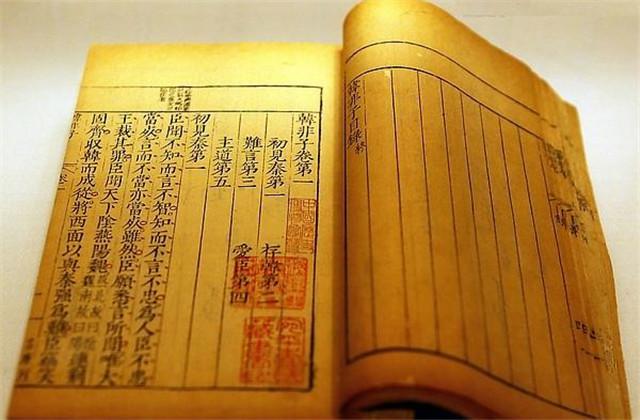 韓非子目錄終
韓非子卷第一
初見秦第一 存韓第二
難言第三 愛臣第四
主道第五
初見秦第一
臣聞不知而言不智知而不言不忠爲人臣不忠
當死言而不當亦當死雖然臣願悉言所聞唯大
王裁其罪臣聞天下陰燕陽魏燕北故曰陰魏南故曰陽連荆
固齊收韓而成從將西面以與秦强爲